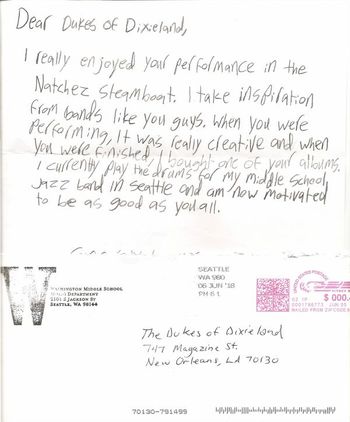 Dear Dukes of Dixieland,
I really enjoyed your performance in the
Natchez steamboat. I take inspiration
from bands like you guys. When you were
performing, It was really creative and when
you were finished I bought one of your albums.
I currently play the drums for my middle school
jazz band in seattle and am now motivated
to be as good as you all.
SEATTLE
WA 980
06 JUN '18
PM 6 L
WASHINGTON MIDDLE SCHOOL
MUSIC DEPARTMENT
2101 S JACKSON ST
SEATTLE, WA 98144
$ 000.
MAILED FROM ZIP CODE
The Dukes of Dixieland
747 Magazine St.
New Orleans, LA 70130
70130-791499